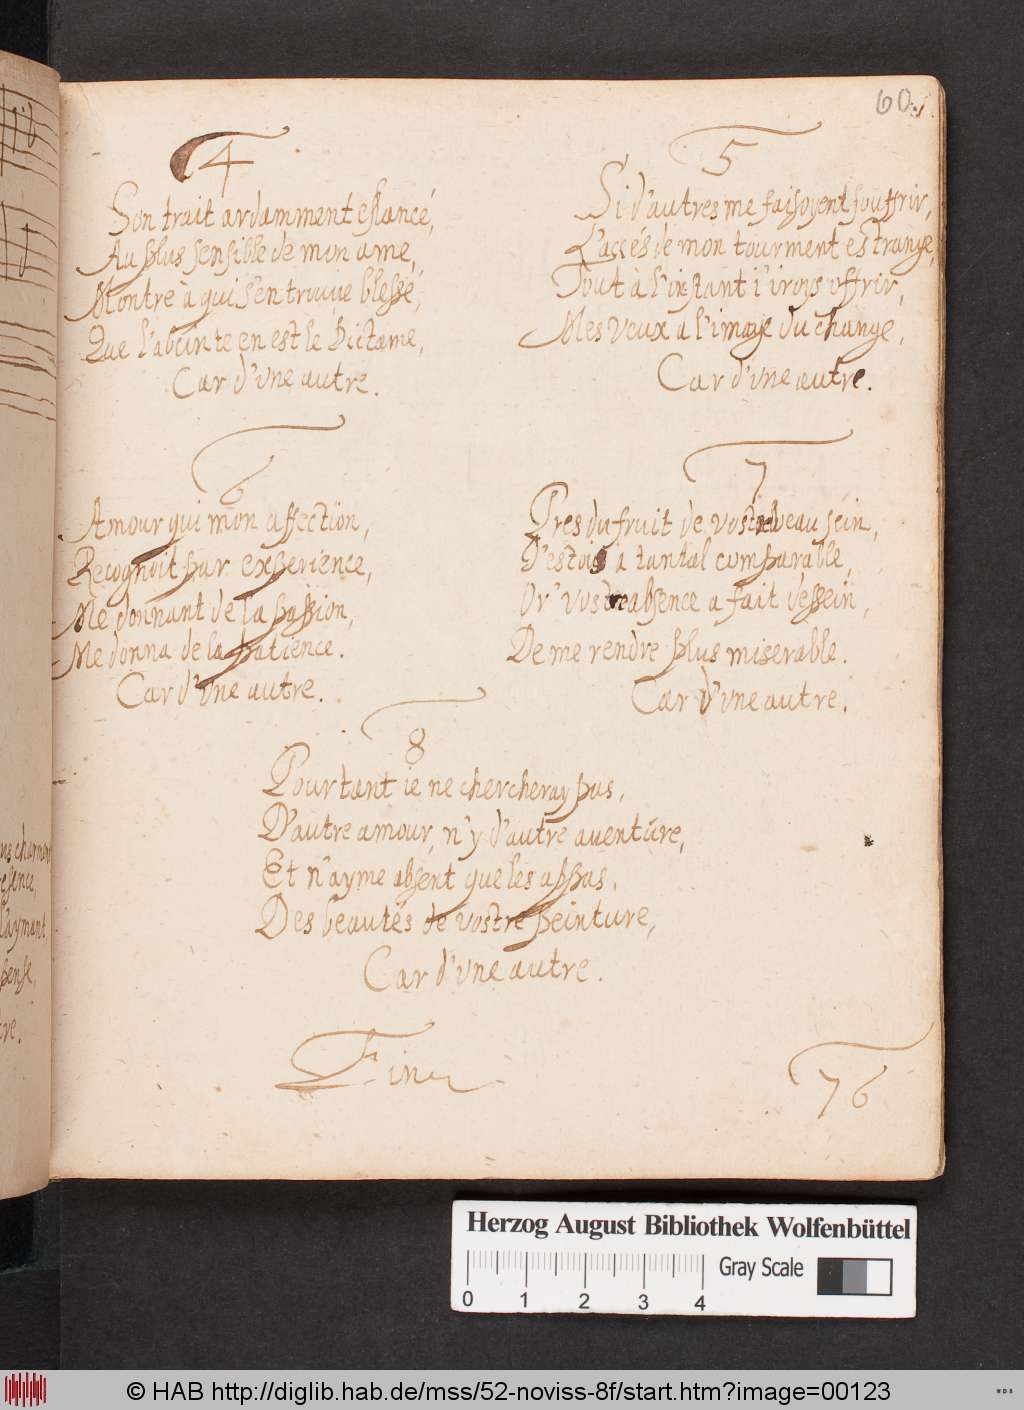 60.
4
Son trait ardamment eslancé,
Au plus sensible de mon ame,
Montre à qui s'en trouve blessé,
Que l'absinte en est le Dictame,
Car d'vne autre.
5
Si d'autres me faisoyent souffrir,
L'accés de mon tourment estrange,
Tout à l'instant i'iroys offrir,
Mes veux a l'image du change,
Car d'vne autre.
6
Amour qui mon affection,
Recognoit par experience,
Me donnant de la passion,
Me donna de la patience.
Car d'vne autre.
7
Pres du fruit de vostre beau sein,
J'estois a tantal comparable,
Or' vostre absence a fait dessein,
De me rendre plus miserable.
Car d'vne autre.
8
Pourtant ie ne chercheray pas,
D'autre amour, n'y d'autre aventure,
Et n'ayme absent que les appas,
Des beautés de vostre peinture,
Car d'vne autre.
Fin
76
Herzog August Bibliothek Wolfenbüttel
Gray Scale
0 1 2 3 4
© HAB http://diglib.hab.de/mss/52-noviss-8f/start.htm?image=00123